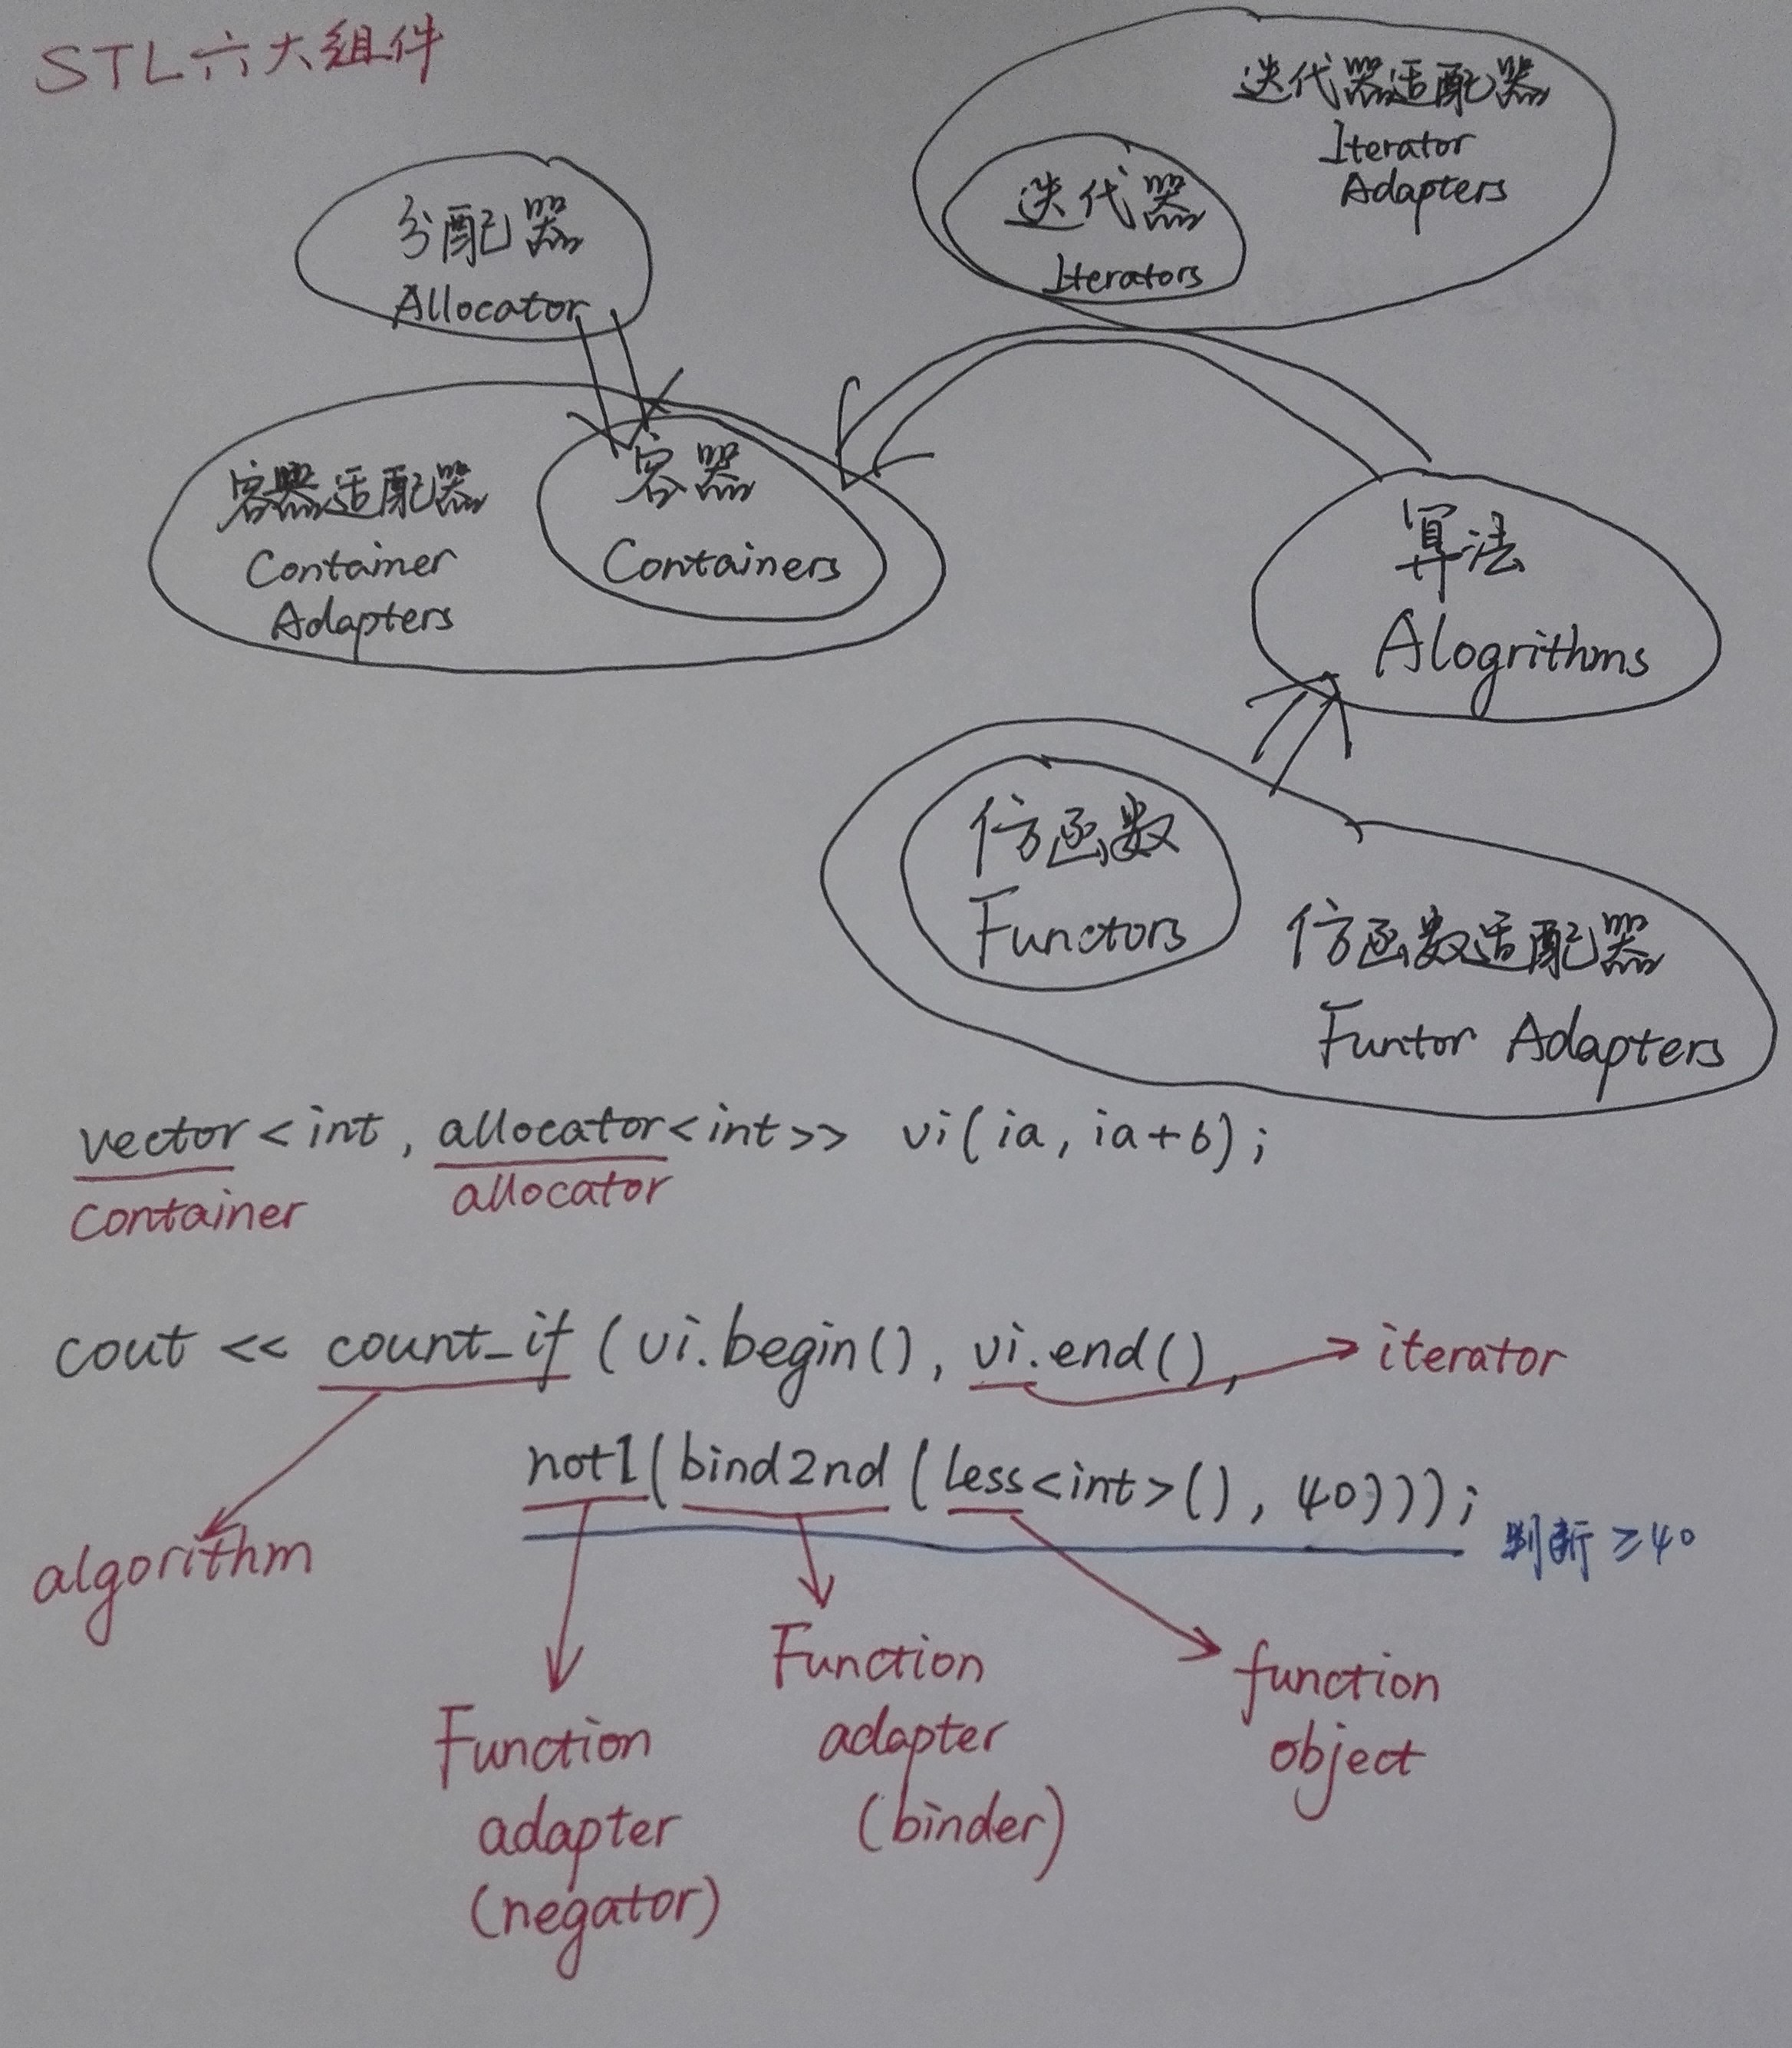 STL六大组件
迭代器适配器
Iterator
Adapters
迭代器
Iterators
分配器
Allocator
容器适配器
Container
Adapters
容器
Containers
算法
Alogrithms
仿函数
Functors
仿函数适配器
Funtor Adapters
vector<int, allocator<int>> vi(ia, ia+6);
container
allocator
cout << count_if (vi.begin(), vi.end(),
iterator
not1(bind2nd(less<int>(), 40)));
判断 ≥40
algorithm
Function
adapter
(negator)
Function
adapter
(binder)
function
object